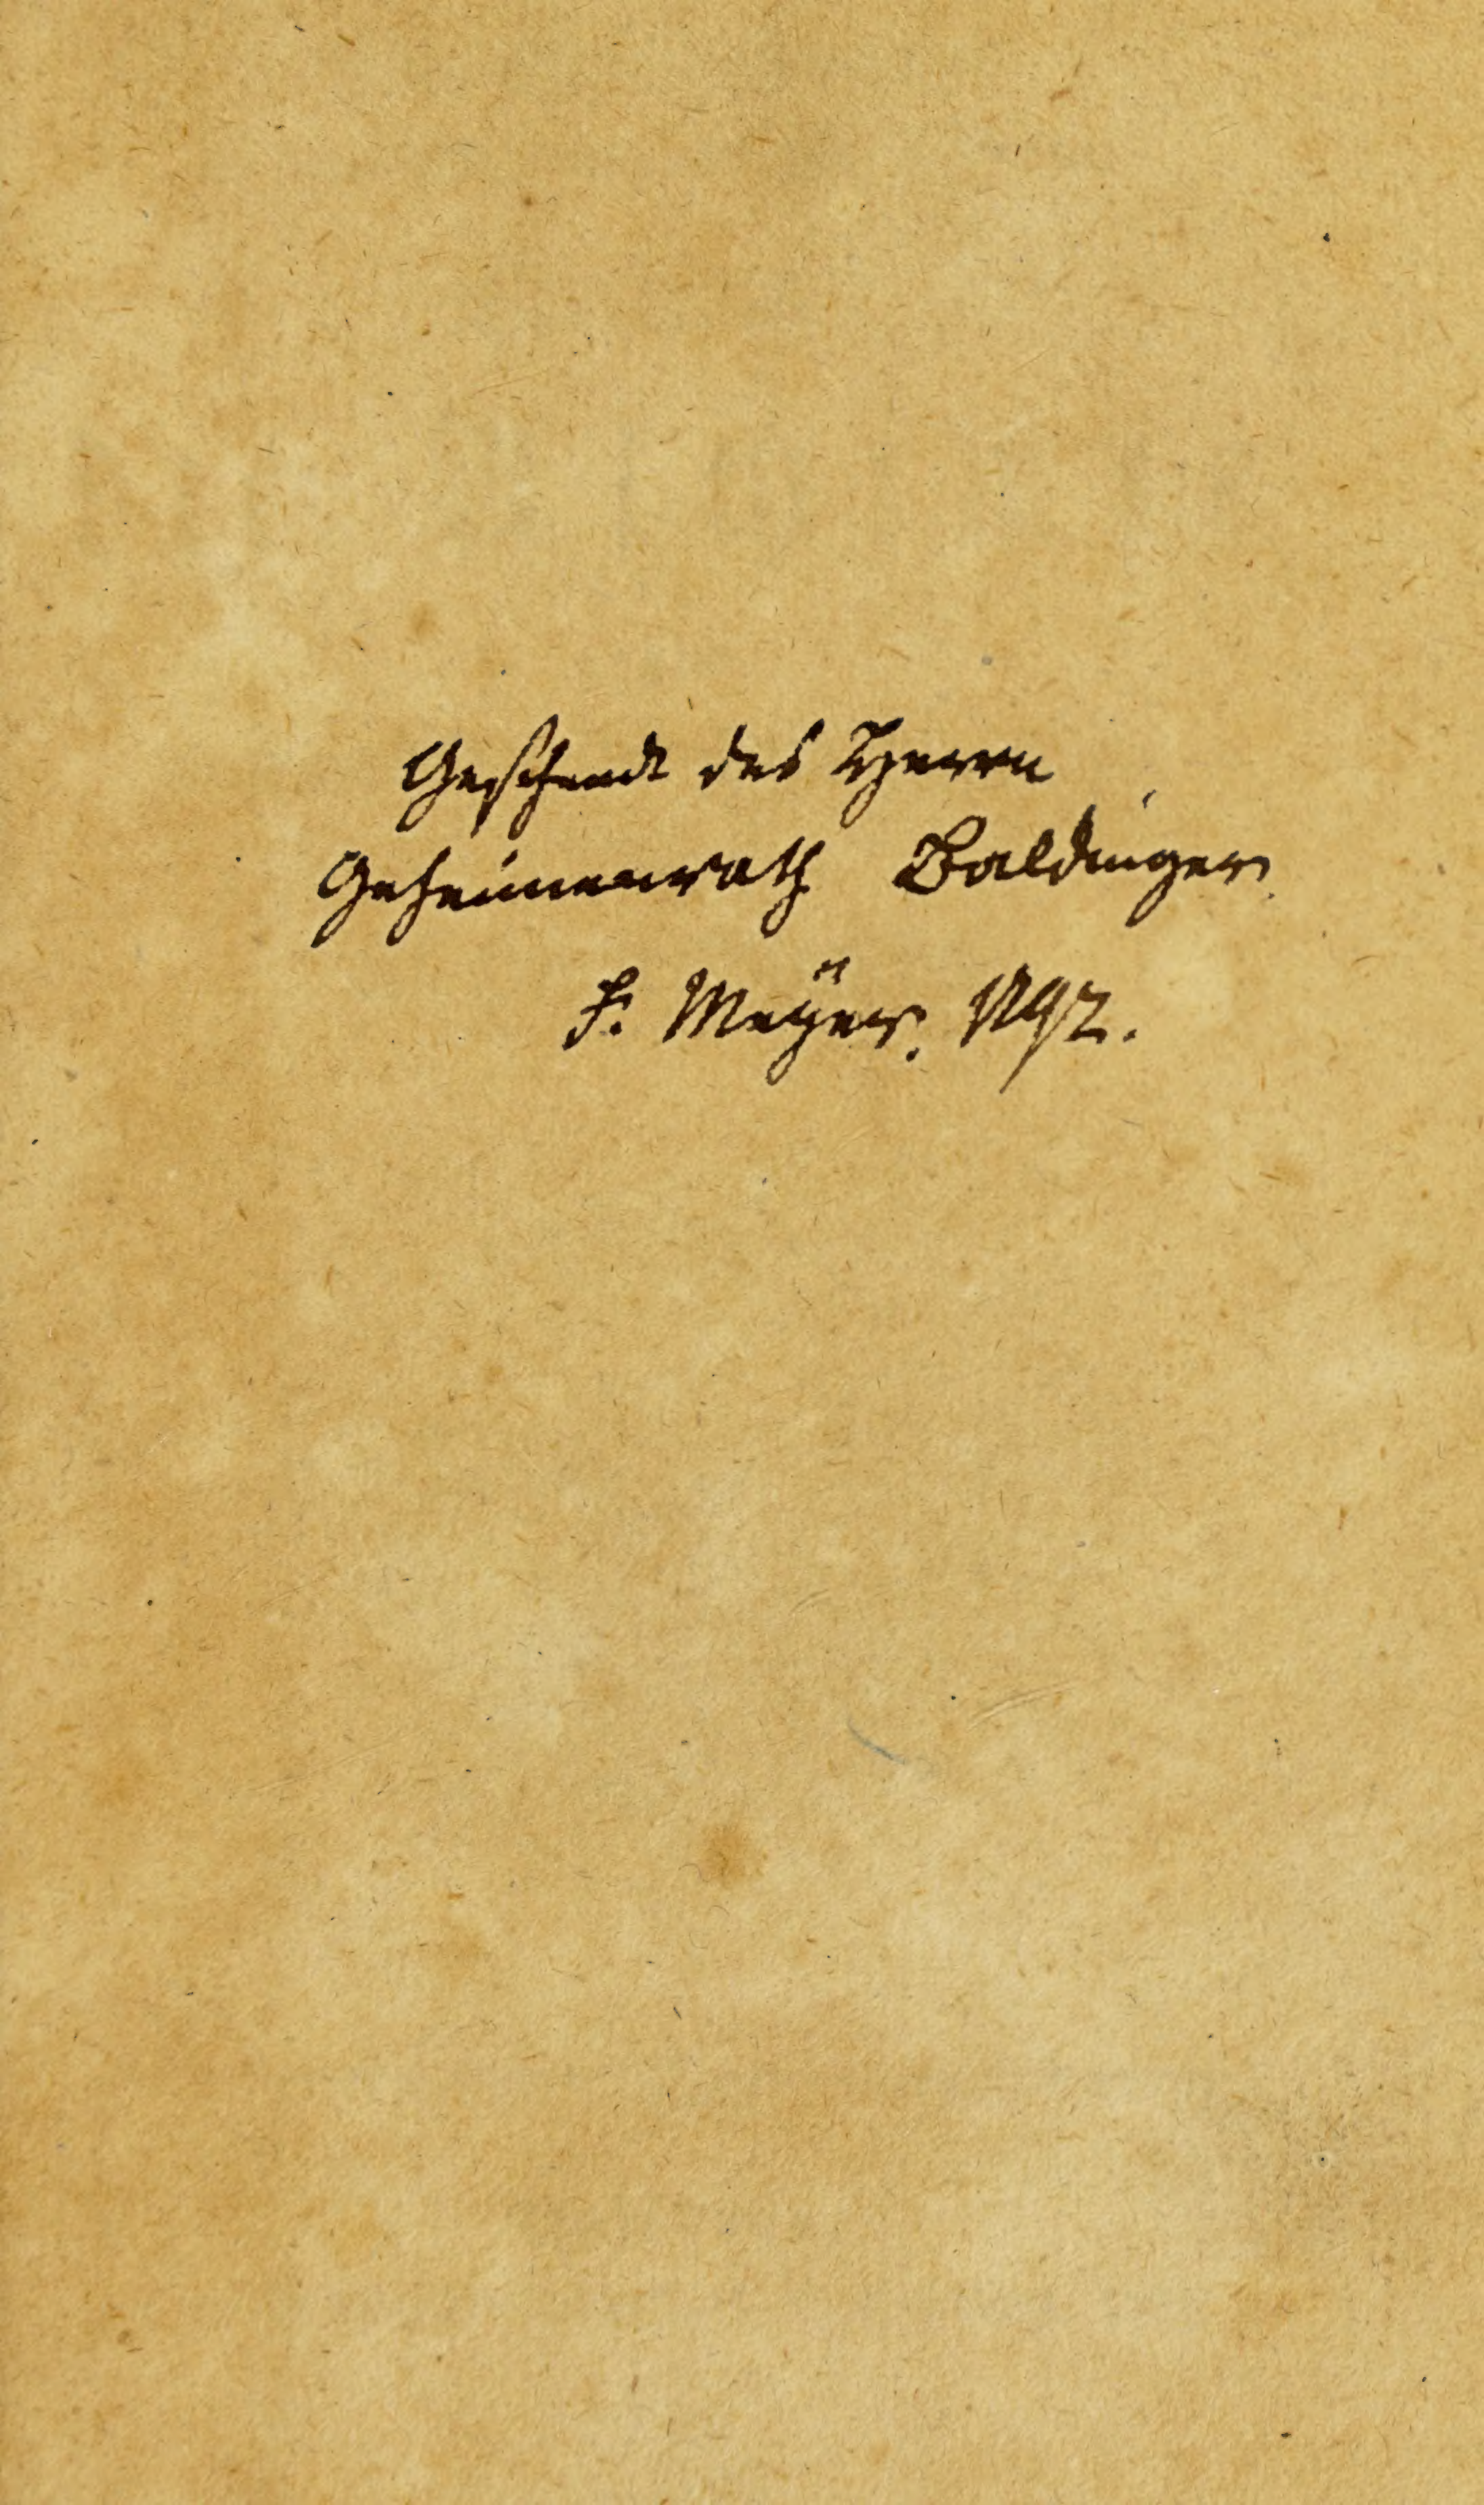 Geschenck des Herrn
Geheimenrath Baldinger.
F. Meÿer. 1792.